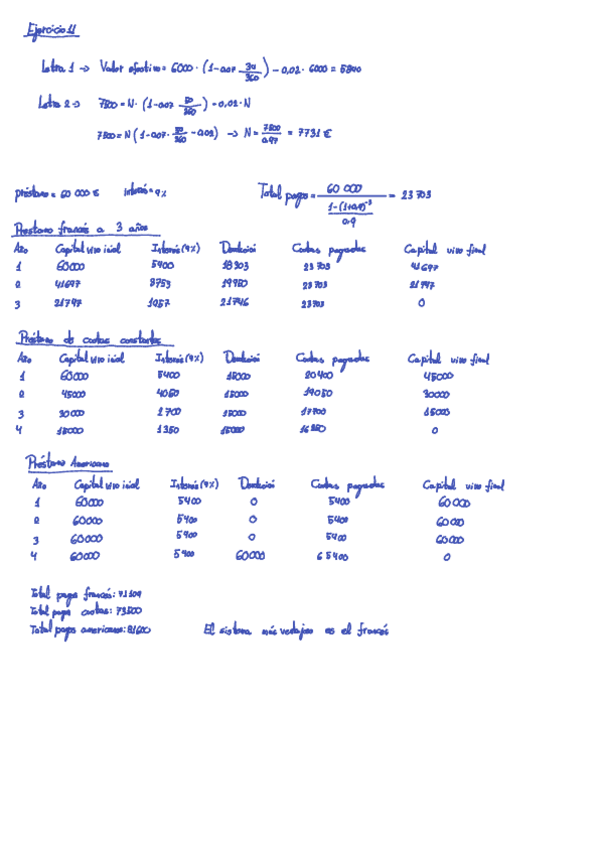 Ejercicio 11
Letra 1 -> Valor efectivo = 6000 · (1-0.07 · 30/360) - 0,02 · 6000 = 5840
Letra 2 -> 7500 = N · (1-0.07 50/360) - 0,02 · N
7500 = N (1-0.07 · 50/360 - 0.02) -> N = 7500/0.97 = 7731 €
préstamo = 60 000 € interés = 9% Total pagos = 60 000 / (1-(1+0.9)⁻³ / 0.9) = 23 703
Préstamo francés a 3 años
Año Capital vivo inicial Interés (9%) Devolución Cuotas pagadas Capital vivo final
1 60000 5400 18303 23 703 41697
2 41697 3753 19950 23 703 21747
3 21747 1957 21746 23703 0
Préstamo de cuotas constantes
Año Capital vivo inicial Interés (9%) Devolución Cuotas pagadas Capital vivo final
1 60000 5400 15000 20400 45000
2 45000 4050 15000 19050 30000
3 30000 2700 15000 17700 15000
4 15000 1350 15000 16350 0
Préstamo Americano
Año Capital vivo inicial Interés (9%) Devolución Cuotas pagadas Capital vivo final
1 60000 5400 0 5400 60000
2 60000 5400 0 5400 60000
3 60000 5400 0 5400 60000
4 60000 5400 60000 65400 0
Total pagos francés: 71109
Total pagos cuotas: 73500
Total pagos americano: 81600 El sistema más ventajoso es el francés